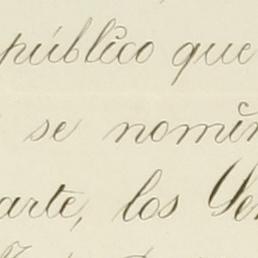 público que
se nomin
arte, los Señ